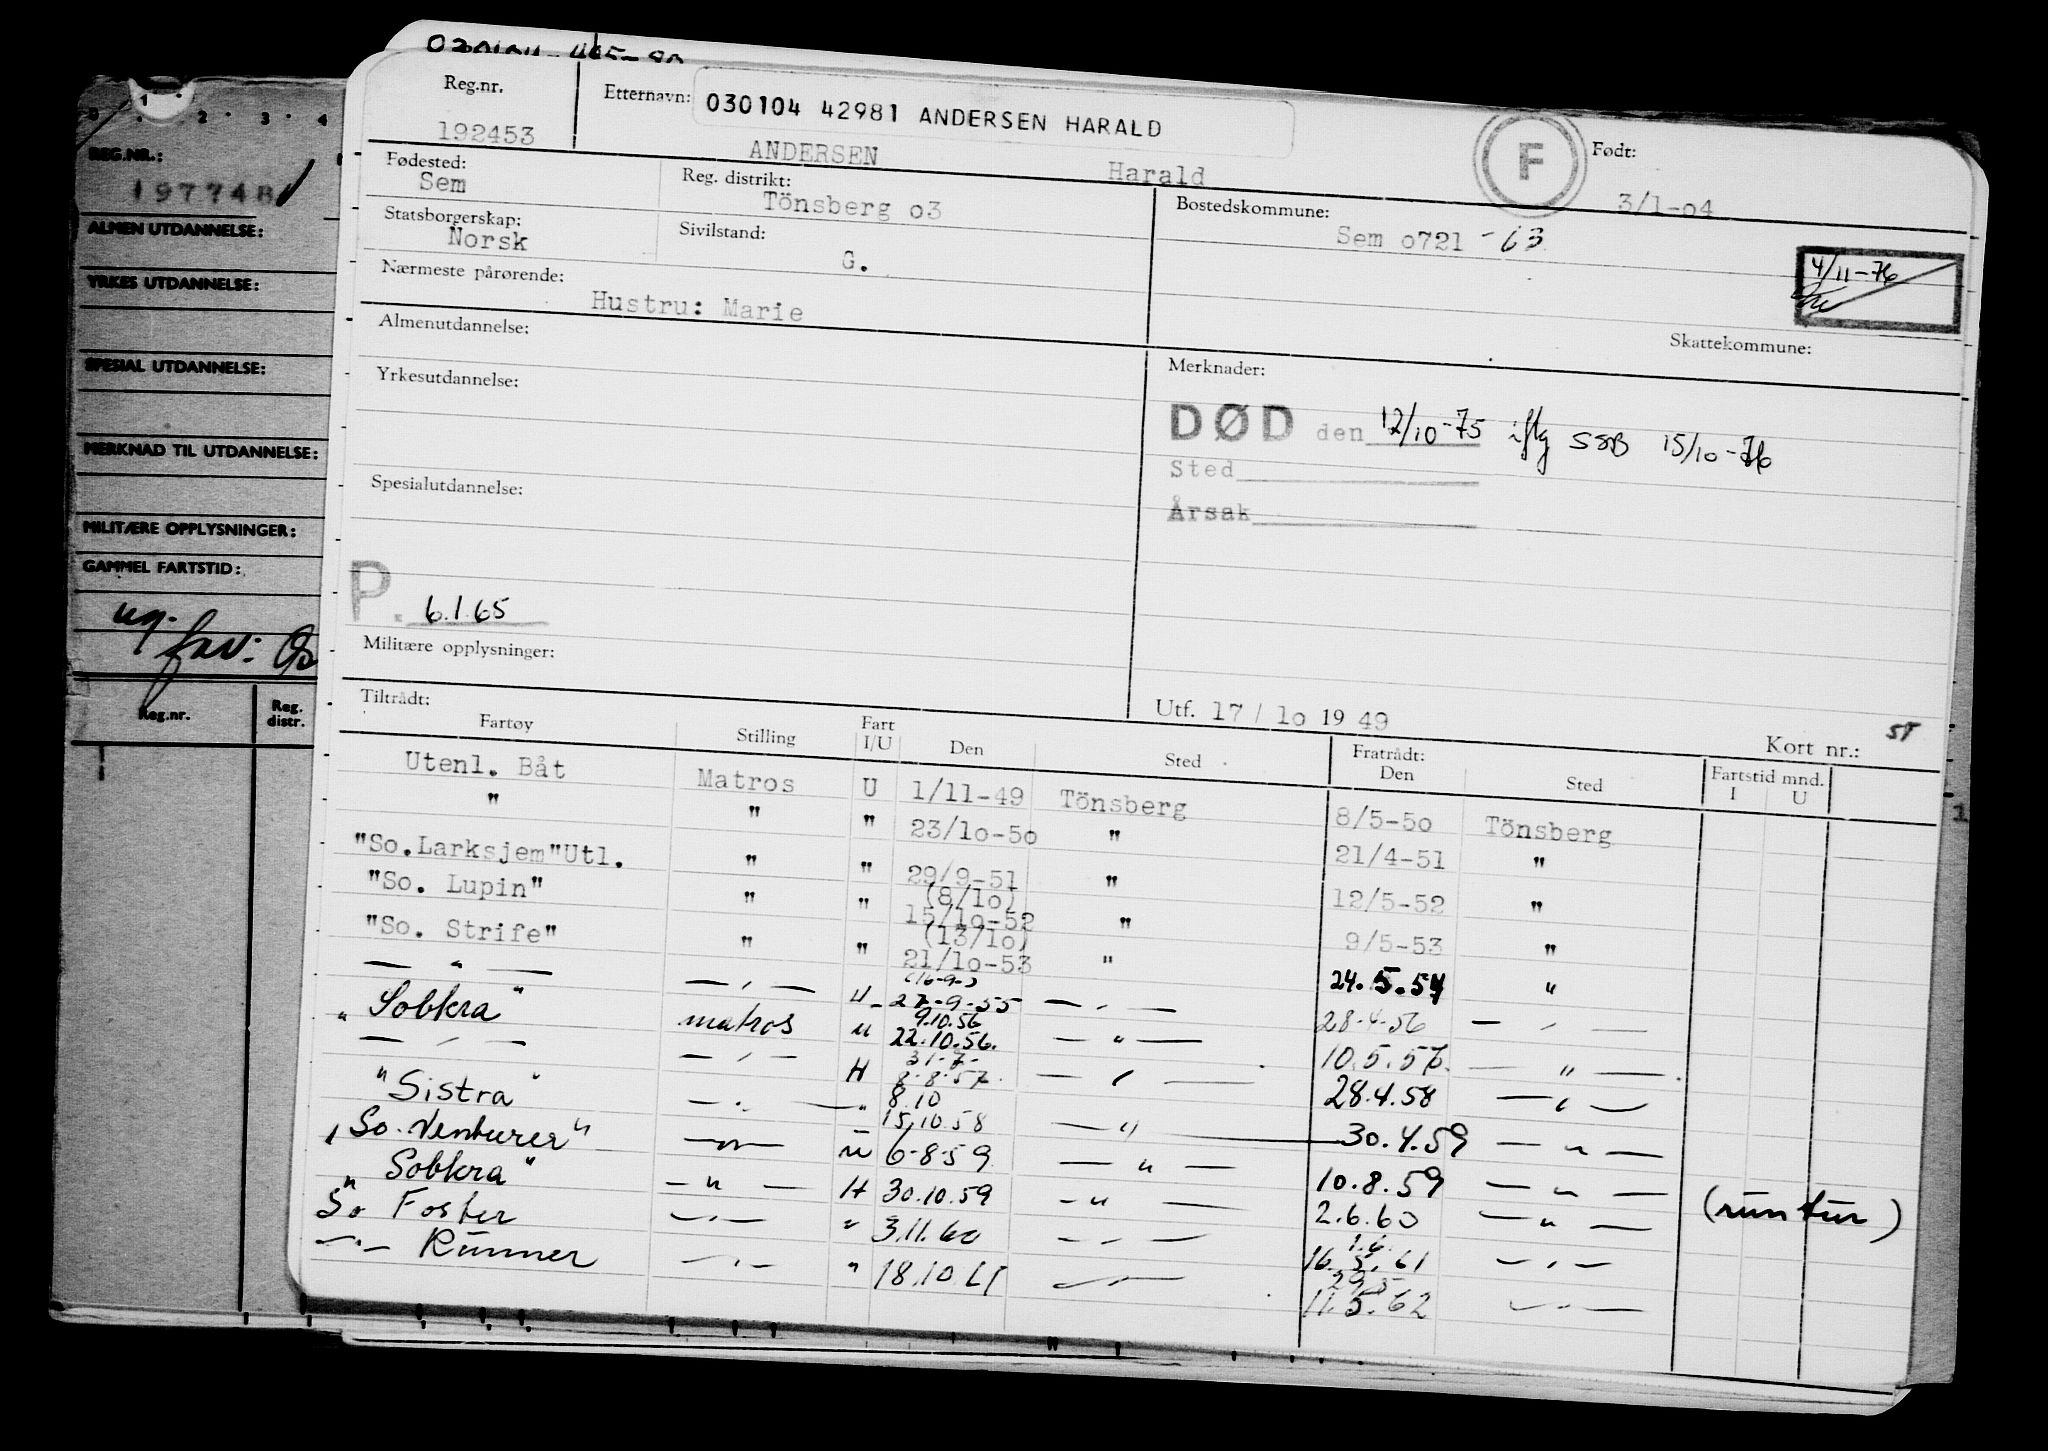 Reg.nr. Etternavn: 030104 42981 ANDERSEN HARALD F Født:
192453 ANDERSEN Harald 3/1-o4
Fødested: Reg. distrikt: Bostedskommune:
Sem Tönsberg o3 Sem o721 -63
Statsborgerskap: Sivilstand:
Norsk G. 4/11-76
Nærmeste pårørende:
Hustru: Marie
Skattekommune:
Almenutdannelse:
Merknader:
Yrkesutdannelse:
DØD den 12/10-75 iflg SSB 15/10-76
Sted
Årsak
Spesialutdannelse:
P. 6.1.65
Militære opplysninger:
Utf. 17/lo 19 49
Kort nr.:
Tiltrådt:
Fartøy Stilling Fart I/U Den Sted Fratrådt: Den Sted Fartstid mnd. I U
Utenl. Båt Matros U 1/11-49 Tönsberg 8/5-50 Tönsberg
" " " 23/lo-5o " 21/4-51 "
"So.Larksjem"Utl. " " 29/9-51 (8/lo) " 12/5-52 "
"So. Lupin" " " 15/lo-52 (13/lo) " 9/5-53 "
"So. Strife" " " 21/lo-53 " 24.5.54 "
— " — — " — U - (16-9-) 27-9-55 — " — 28.4.56 — " —
"Sobkra" matros u 9.10.56 22.10.56. — " — 10.5.57. — " —
— " — — " — H 31-7- 8-8-57. — " — 28.4.58 — " —
"Sistra" — " — " 8.10 15.10.58 — " — 30.4.59 — " —
"So. Venturer" — " — u 6-8-59 — " — 10.8.59 — " — (rundtur)
"Sobkra" — " — H 30.10.59 — " — 2.6.60 — " —
So Foster — " — " 3.11.60 — " — 1.6. 16.5.61 — " —
— " — Runner — " — " 18.10.61 — " — 29.5 11.5.62 — " —
REG.NR.:
197748
ALMEN UTDANNELSE:
YRKES UTDANNELSE:
SPESIAL UTDANNELSE:
MERKNAD TIL UTDANNELSE:
MILITÆRE OPPLYSNINGER:
GAMMEL FARTSTID:
Reg.nr. Reg. distr.